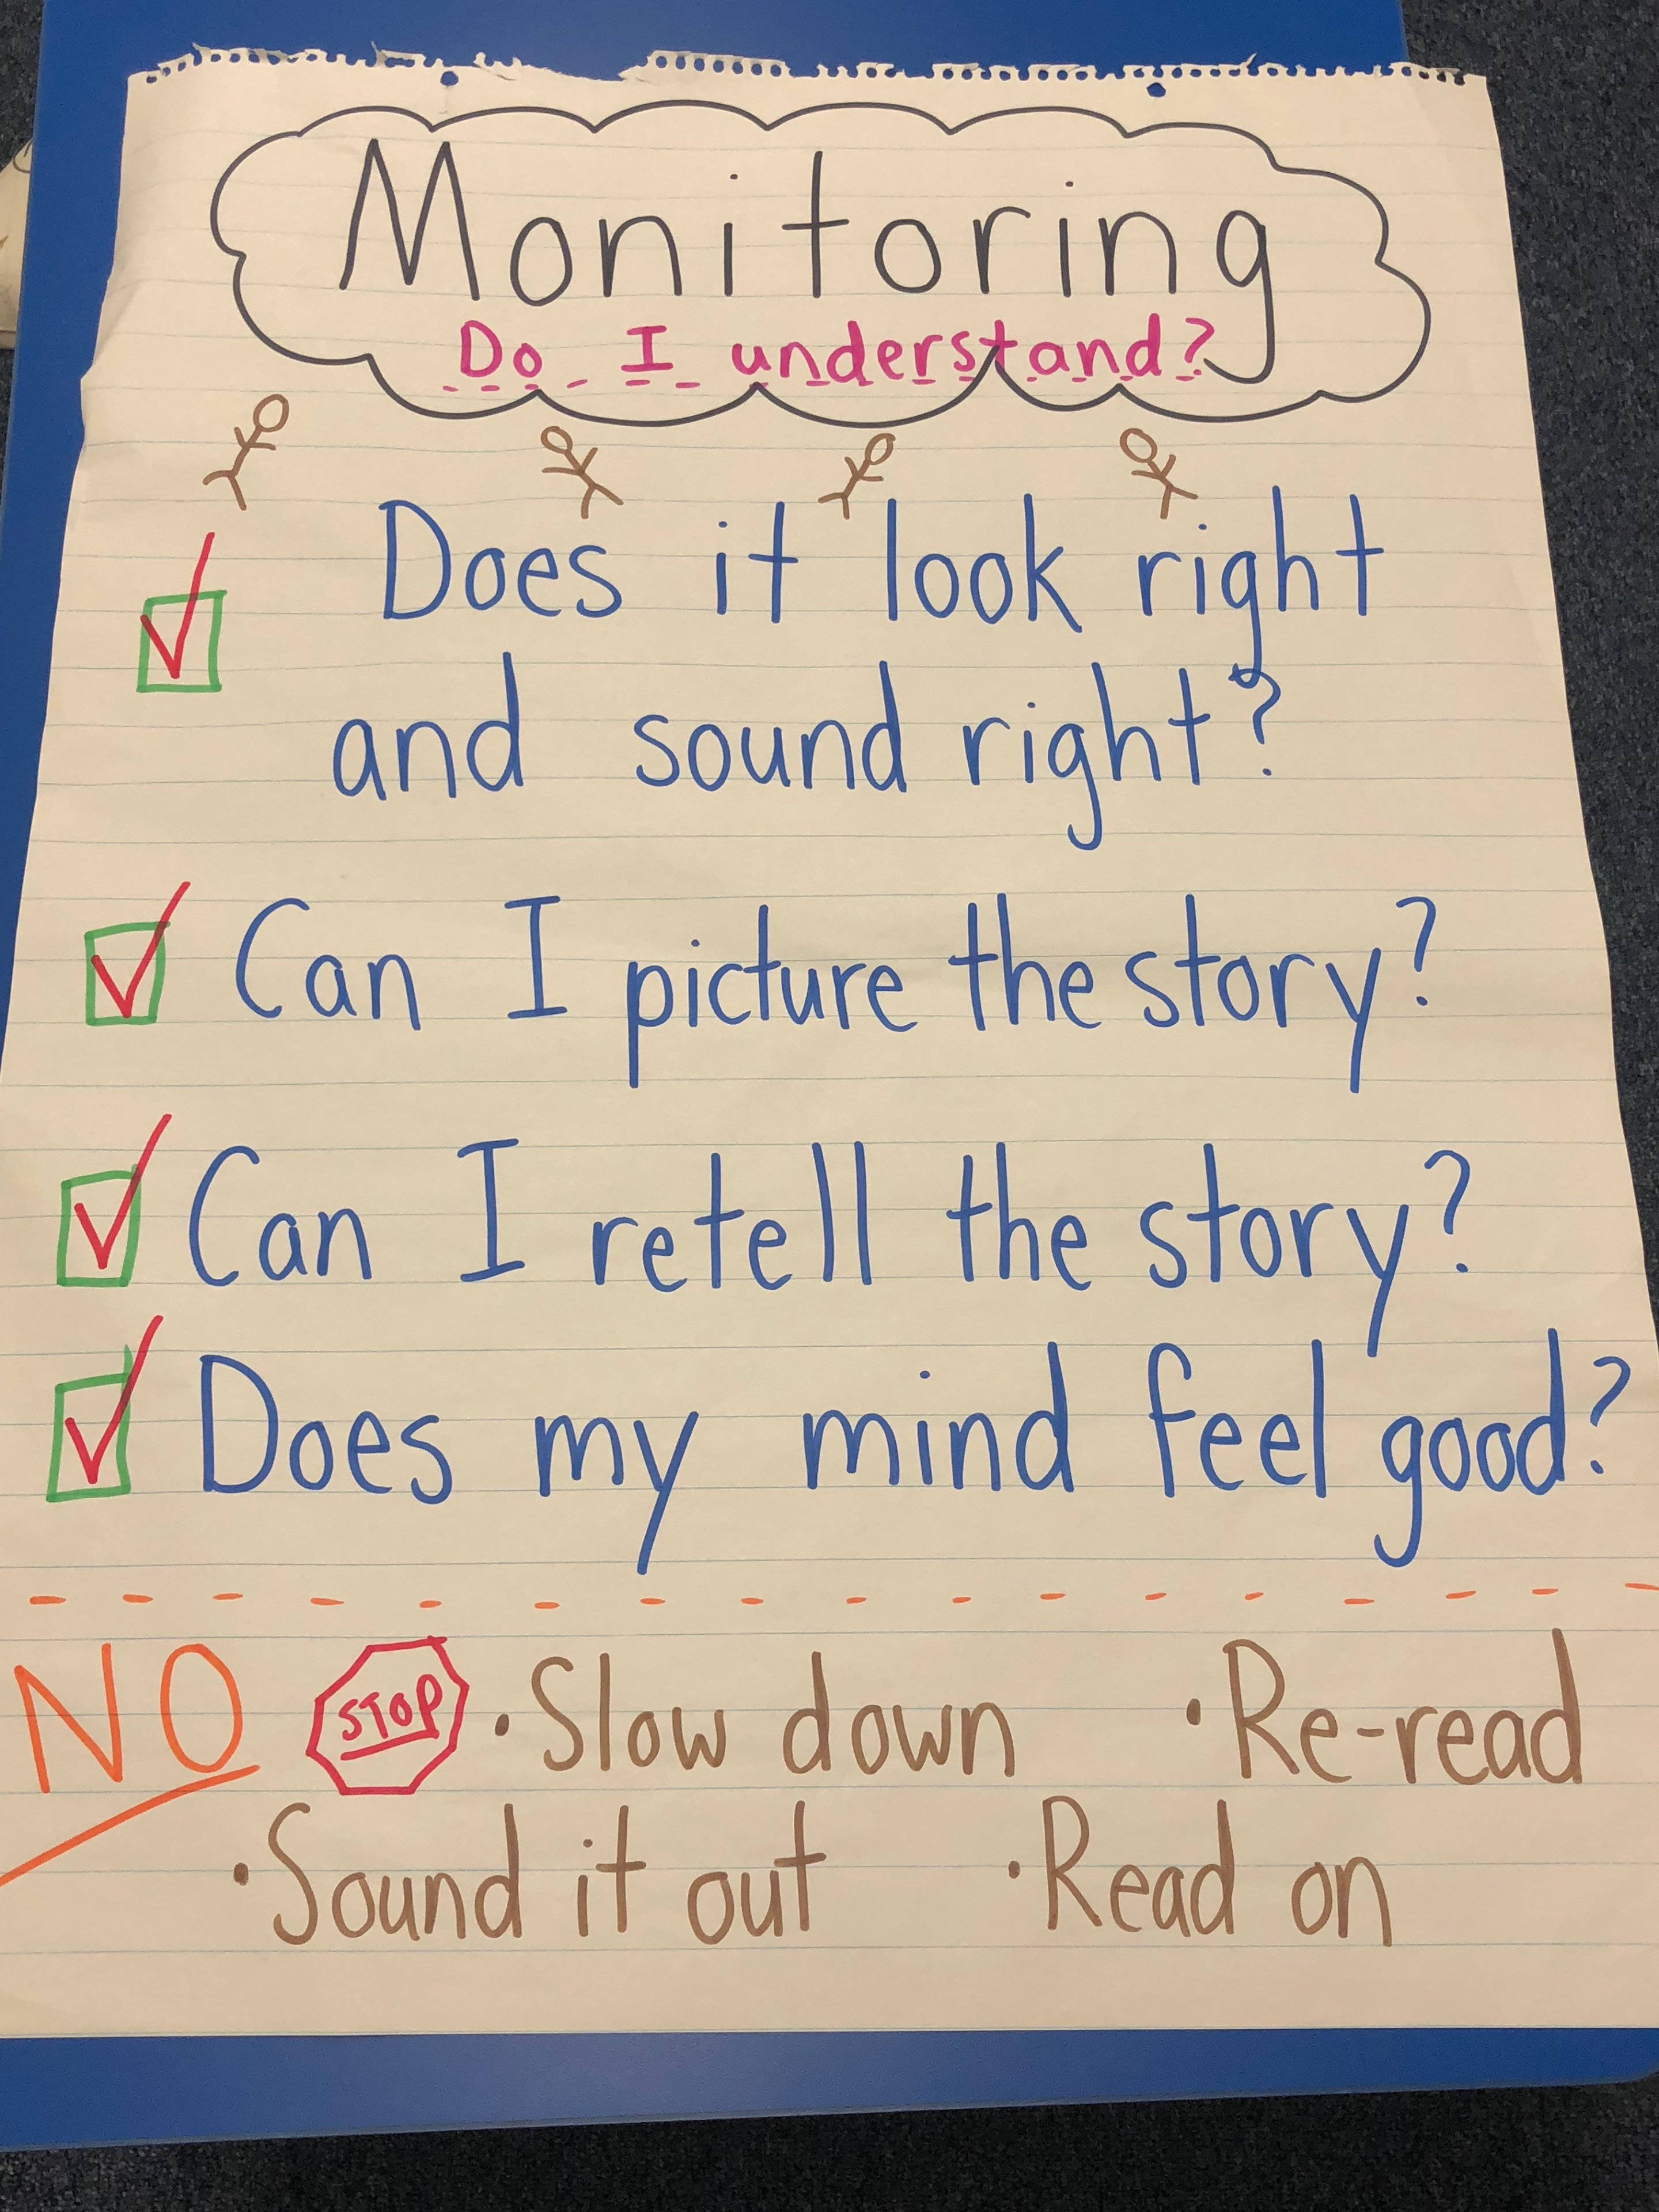 Monitoring
Do I understand?
Does it look right
and sound right?
Can I picture the story?
Can I retell the story?
Does my mind feel good?
NO STOP •Slow down •Re-read
•Sound it out •Read on